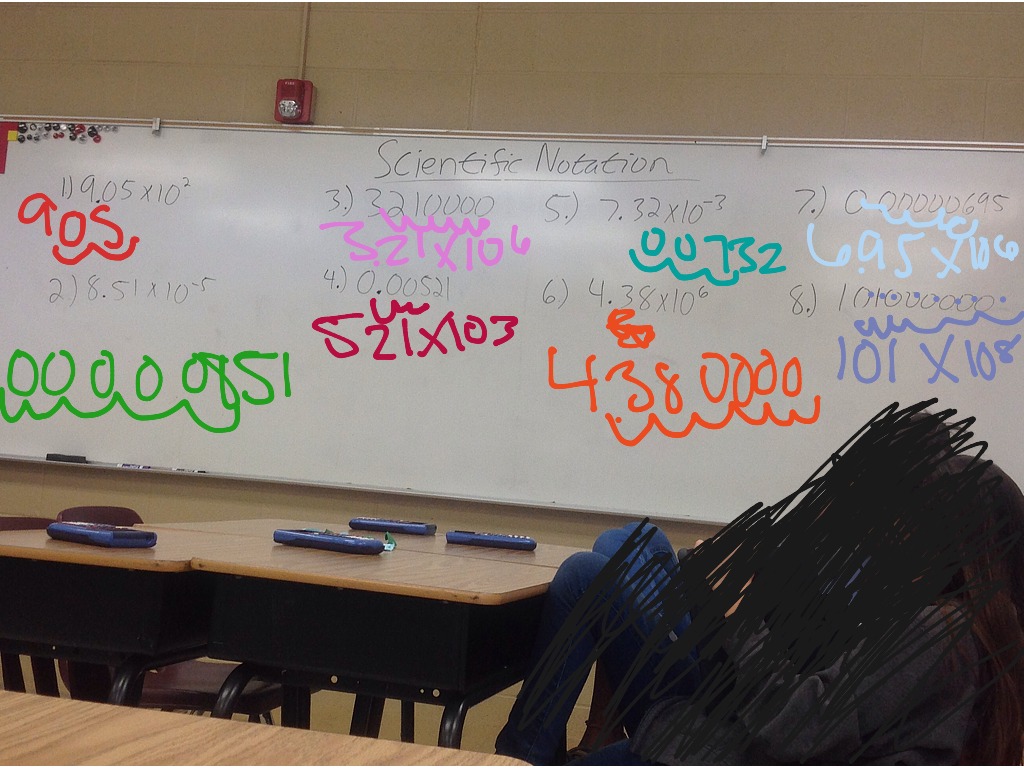 Scientific Notation
1) 9.05 x 10²
905
2) 8.51 x 10⁻⁵
0000851
3.) 3210000
3.21x106
4.) 0.00521
521x103
5.) 7.32x10⁻³
00732
6.) 4.38x10⁶
4380000
7.) 0.00000695
6.95 x106
8.) 101000000.
101 x 108